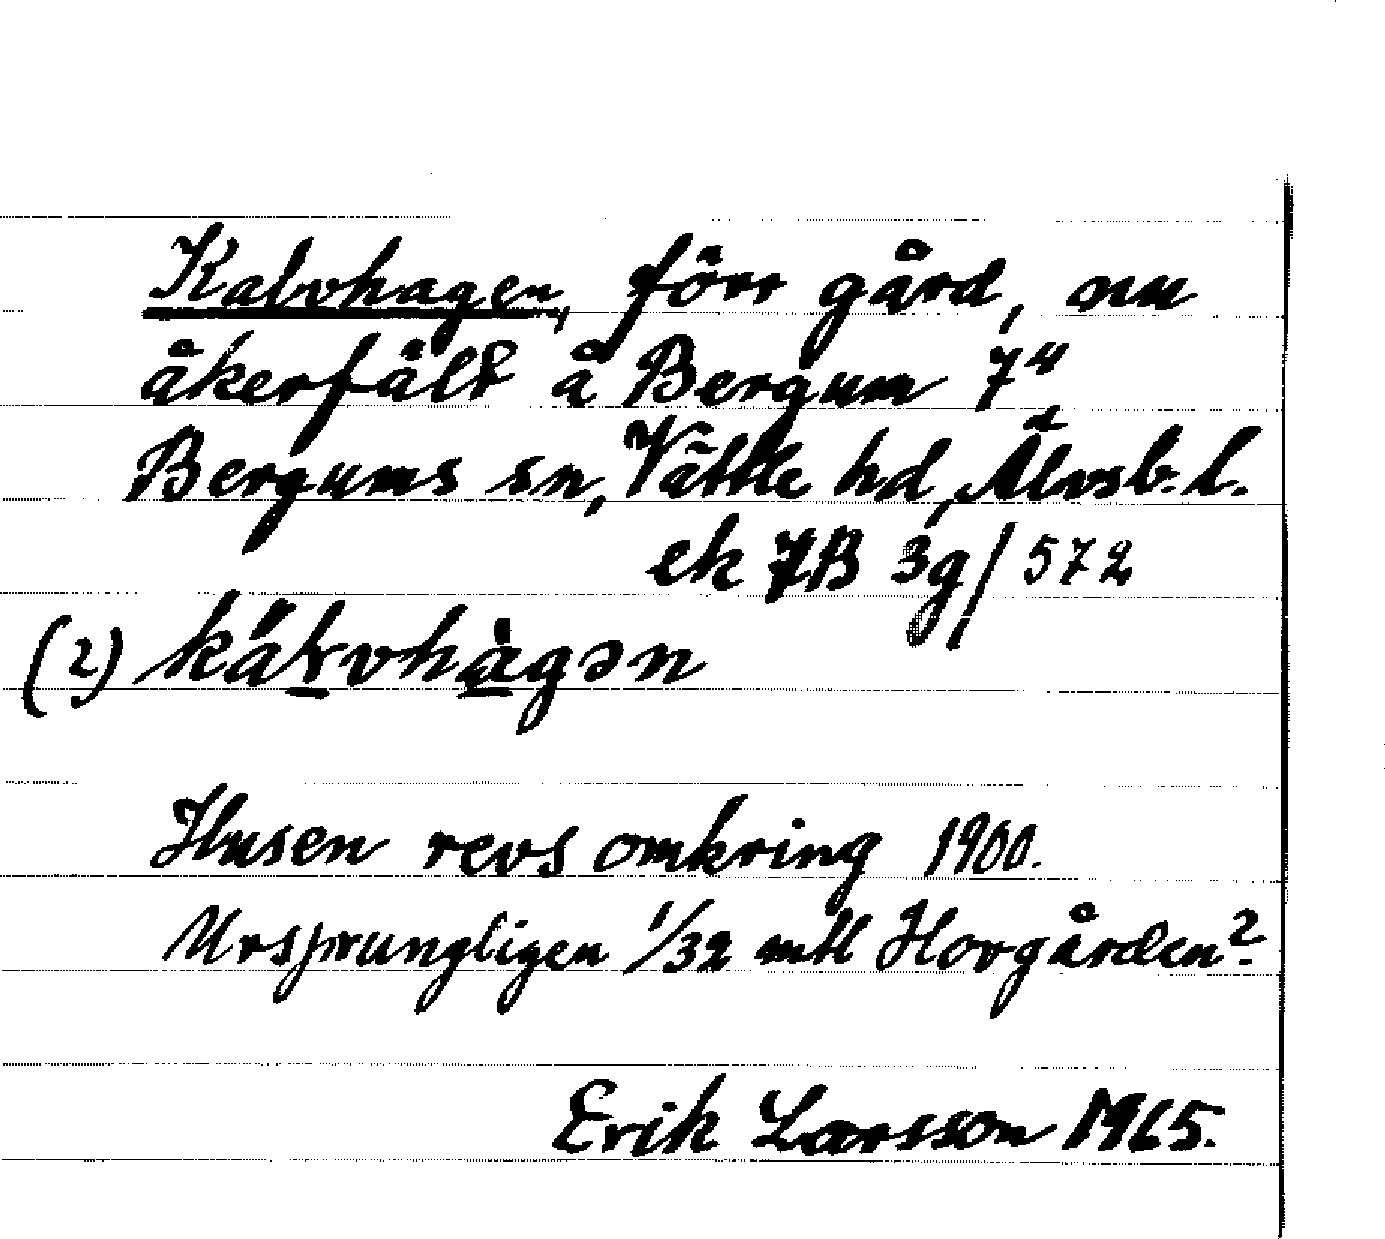 Kalvhagen, förr gård, nu
åkerfält å Bergum 7⁴
Bergums sn, Vättle hd, Älvsb. l.
ek 7B 3g/572
(2) kàḷvhàgən
Husen revs omkring 1900.
Ursprungligen 1/32 mtl Horgården?
Erik Larsson 1965.